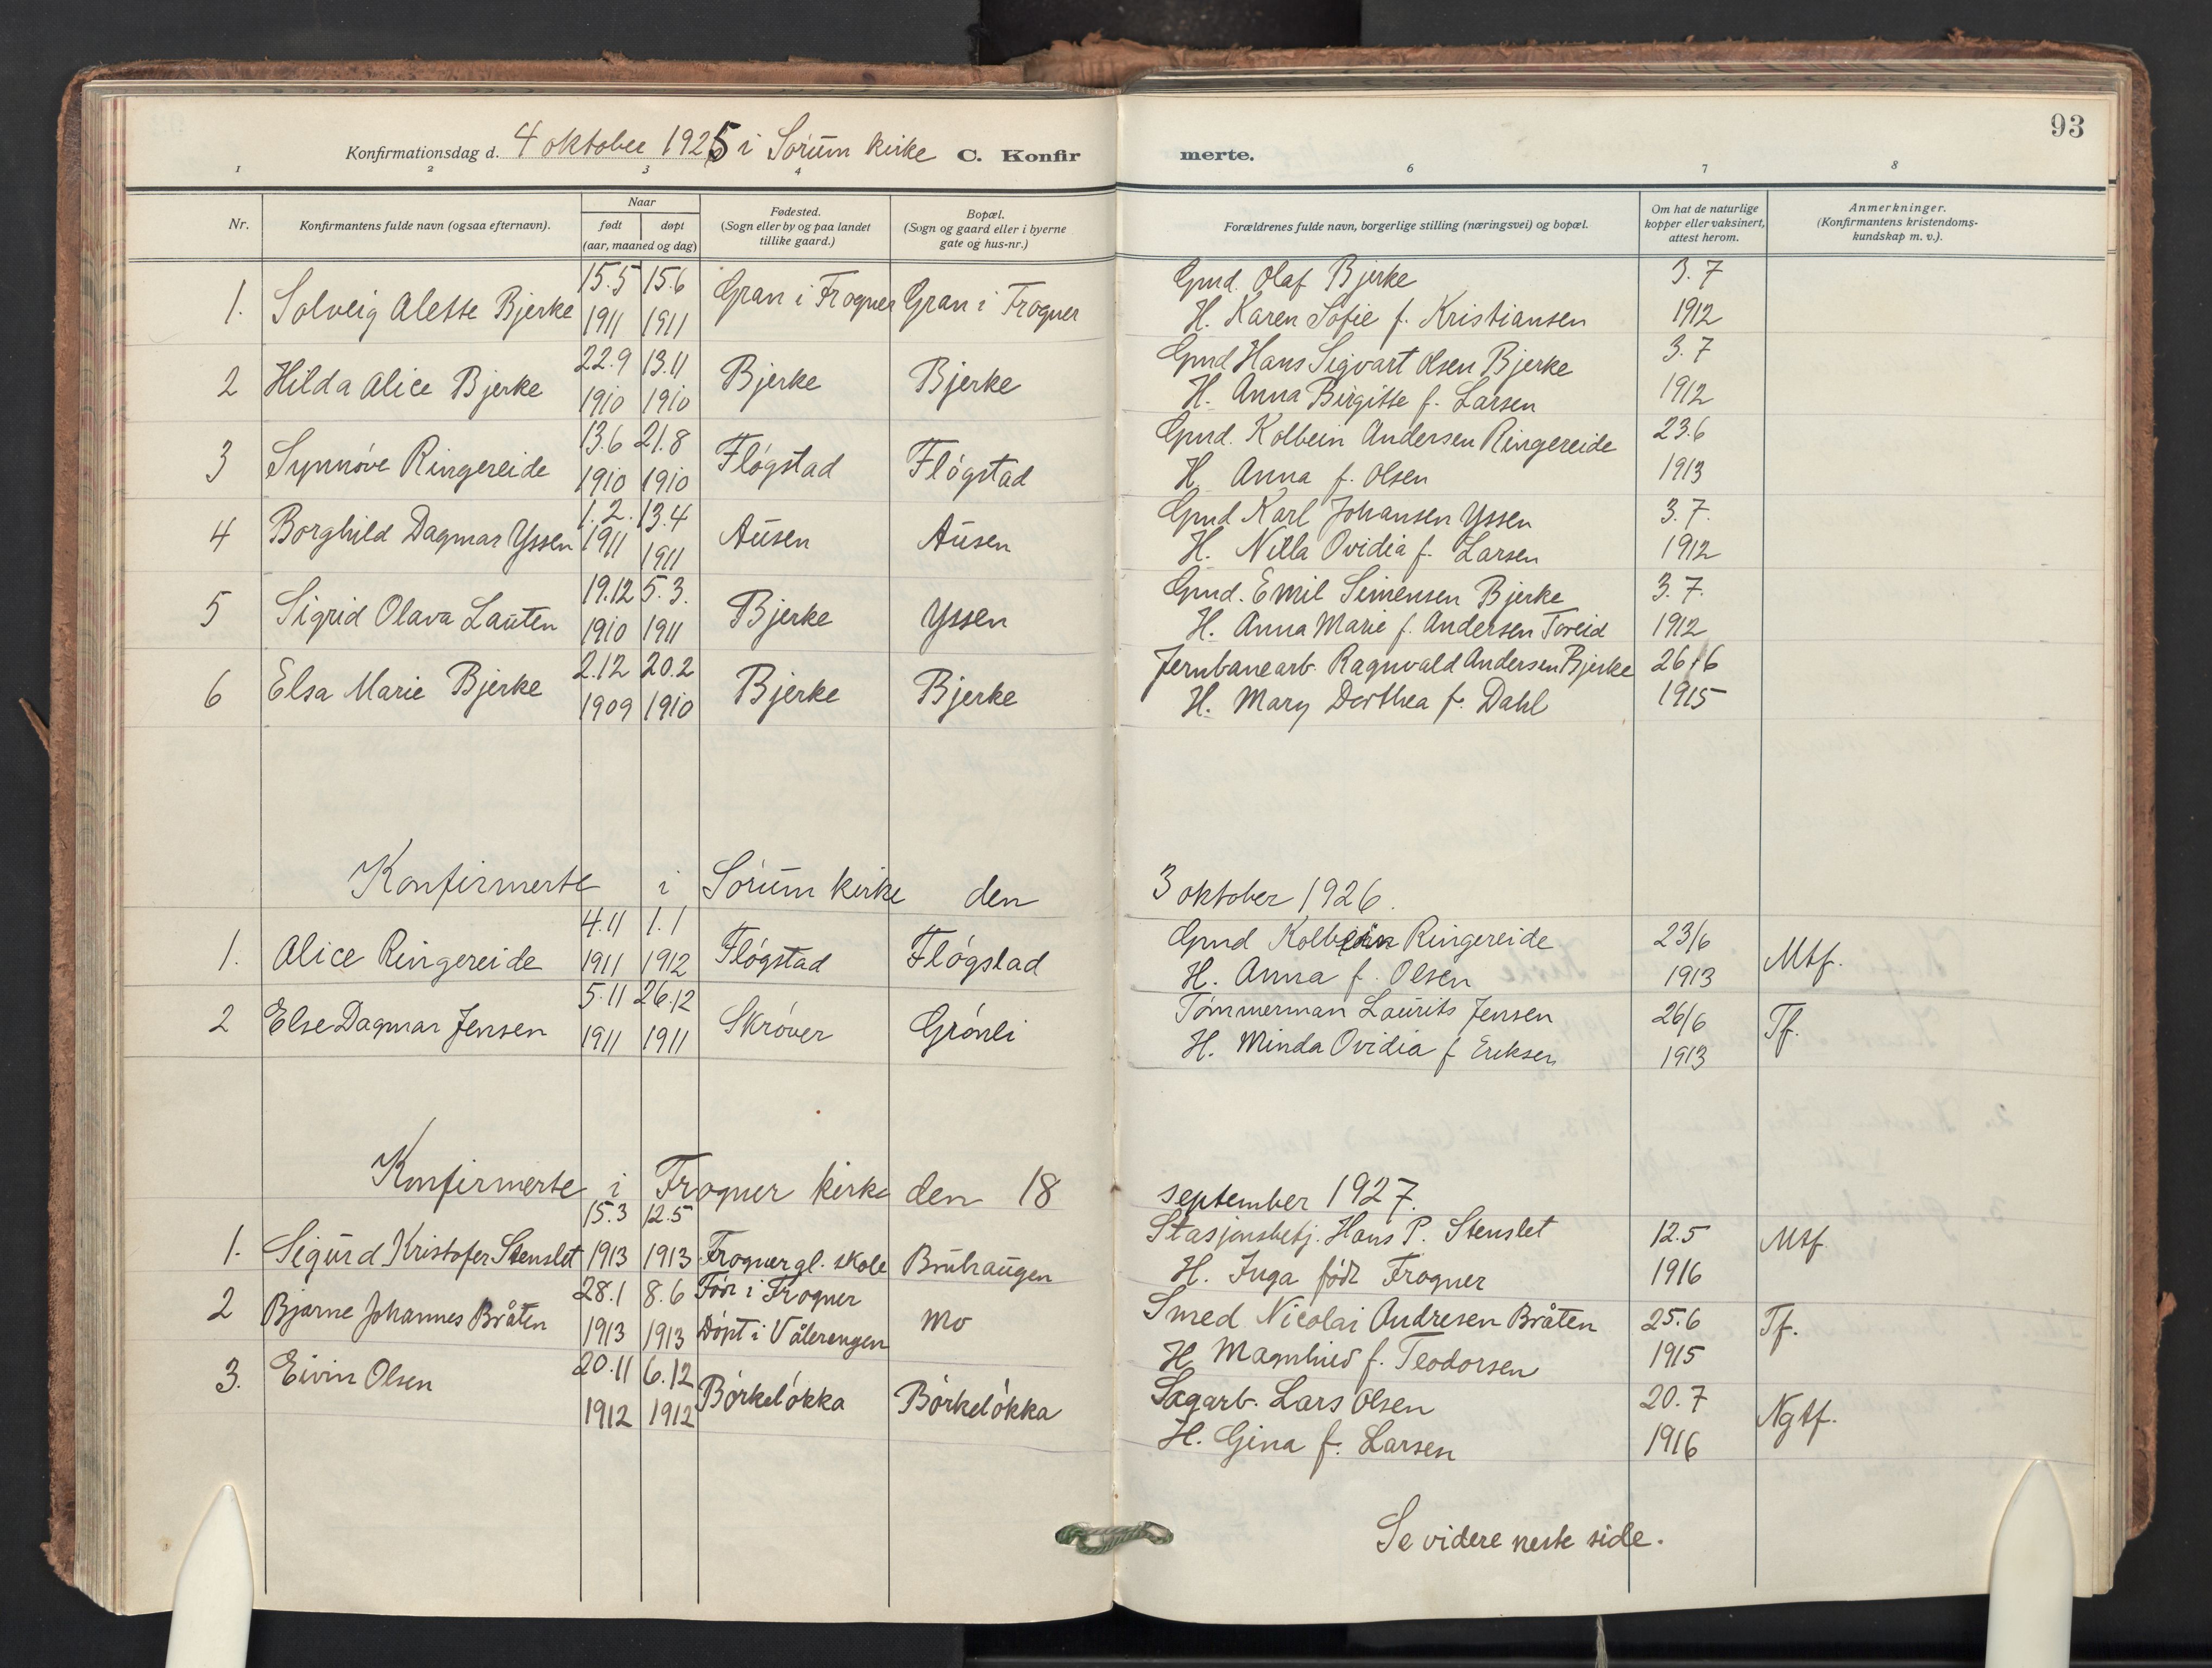 93
Konfirmationsdag d. 4 oktober 1925 i Sørum kirke C. Konfir merte.
1 2 3 4 6 7 8
Nr.
Konfirmantens fulde navn (ogsaa efternavn).
Naar
født døpt
(aar, maaned og dag)
Fødested.
(Sogn eller by og paa landet
tillike gaard.)
Bopæl.
(Sogn og gaard eller i byerne
gate og hus-nr.)
Forældrenes fulde navn, borgerlige stilling (næringsvei) og bopæl.
Om hat de naturlige
kopper eller vaksinert,
attest herom.
Anmerkninger.
(Konfirmantens kristendoms-
kundskap m. v.).
1. Solveig Alette Bjerke 15.5 1911 15.6 1911 Gran i Frogner Gran i Frogner
Gmd. Olaf Bjerke 3.7
H. Karen Sofie f. Kristiansen 1912
2 Hilda Alice Bjerke 22.9 1910 13.11 1910 Bjerke Bjerke
Gmd Hans Sigvart Olsen Bjerke 3.7
H. Anna Birgitte f. Larsen 1912
3 Synnøve Ringereide 13.6 1910 21.8 1910 Fløgstad Fløgstad
Gmd. Kolbein Andersen Ringereide 23.6
H. Anna f. Olsen 1913
4 Borghild Dagmar Yssen 1.2. 1911 13.4 1911 Ausen Ausen
Gmd Karl Johansen Yssen 3.7.
H. Nilla Ovidia f. Larsen 1912
5 Sigrid Olava Lauten 19.12 1910 5.3. 1911 Bjerke Yssen
Gmd. Emil Simensen Bjerke 3.7.
H. Anna Marie f. Andersen Toreid 1912
6 Elsa Marie Bjerke 2.12 1909 20.2 1910 Bjerke Bjerke
Jernbanearb. Ragnvald Andersen Bjerke 26/6
H. Mary Dorthea f. Dahl 1915
Konfirmerte i Sørum kirke den 3 oktober 1926.
1. Alice Ringereide 4.11 1911 1.1 1912 Fløgstad Fløgstad
Gmd Kolbein Ringereide 23/6
H. Anna f. Olsen 1913 Mtf.
2 Else Dagmar Jensen 5.11 1911 26.12 1911 Skrøver Grønli
Tømmerman Laurits Jensen 26/6
H. Minda Ovidia f Eriksen 1913 Tf.
Konfirmerte i Frogner kirke den 18 september 1927.
1. Sigurd Kristofer Stenslet 15.3 1913 12.5 1913 Frogner gl. skole Bruhaugen
Stasjonsbetj. Hans P. Stenslet 12.5
H. Inga født Frogner 1916 Mtf
2 Bjarne Johannes Bråten 28.1 1913 8.6 1913 Før i Frogner Døpt i Vålerengen Mo
Smed Nicolai Andresen Bråten 25.6
H. Magnhild f. Teodorsen 1915 Tf.
3. Eivin Olsen 20.11 1912 6.12 1912 Børkeløkka Børkeløkka
Sagarb. Lars Olsen 20.7
H. Gina f. Larsen 1916 Ngtf.
Se videre neste side.